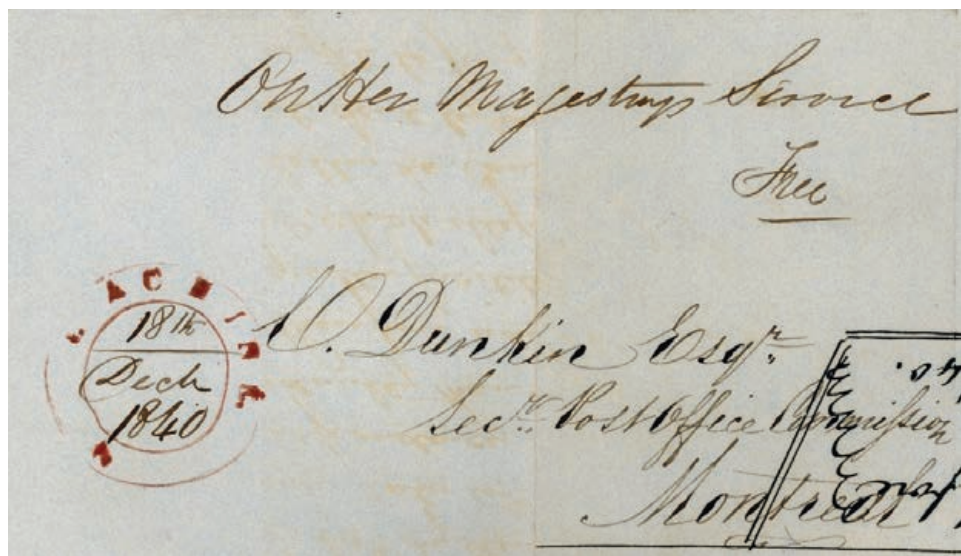 On Her Magestuys Service
Free
LACHINE
18th
Dech
1840
C. Dunkin Esqr.
Secry. Post Office Commission
Montreal